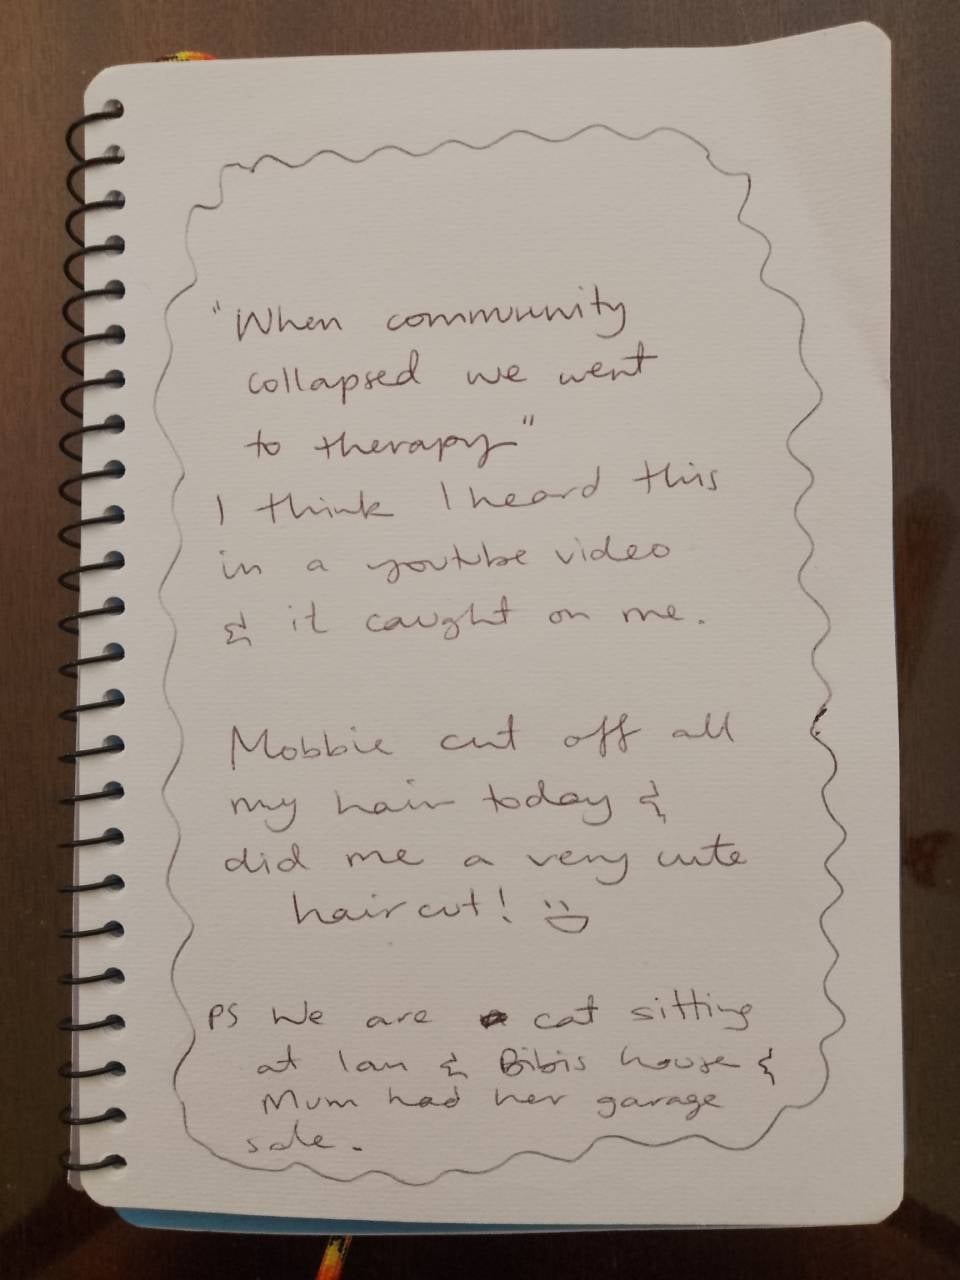 "When community
collapsed we went
to therapy"
I think I heard this
in a youtube video
& it caught on me.
Mobbie cut off all
my hair today &
did me a very cute
haircut!
PS We are cat sitting
at Ian & Bibis house &
Mum had her garage
sale.